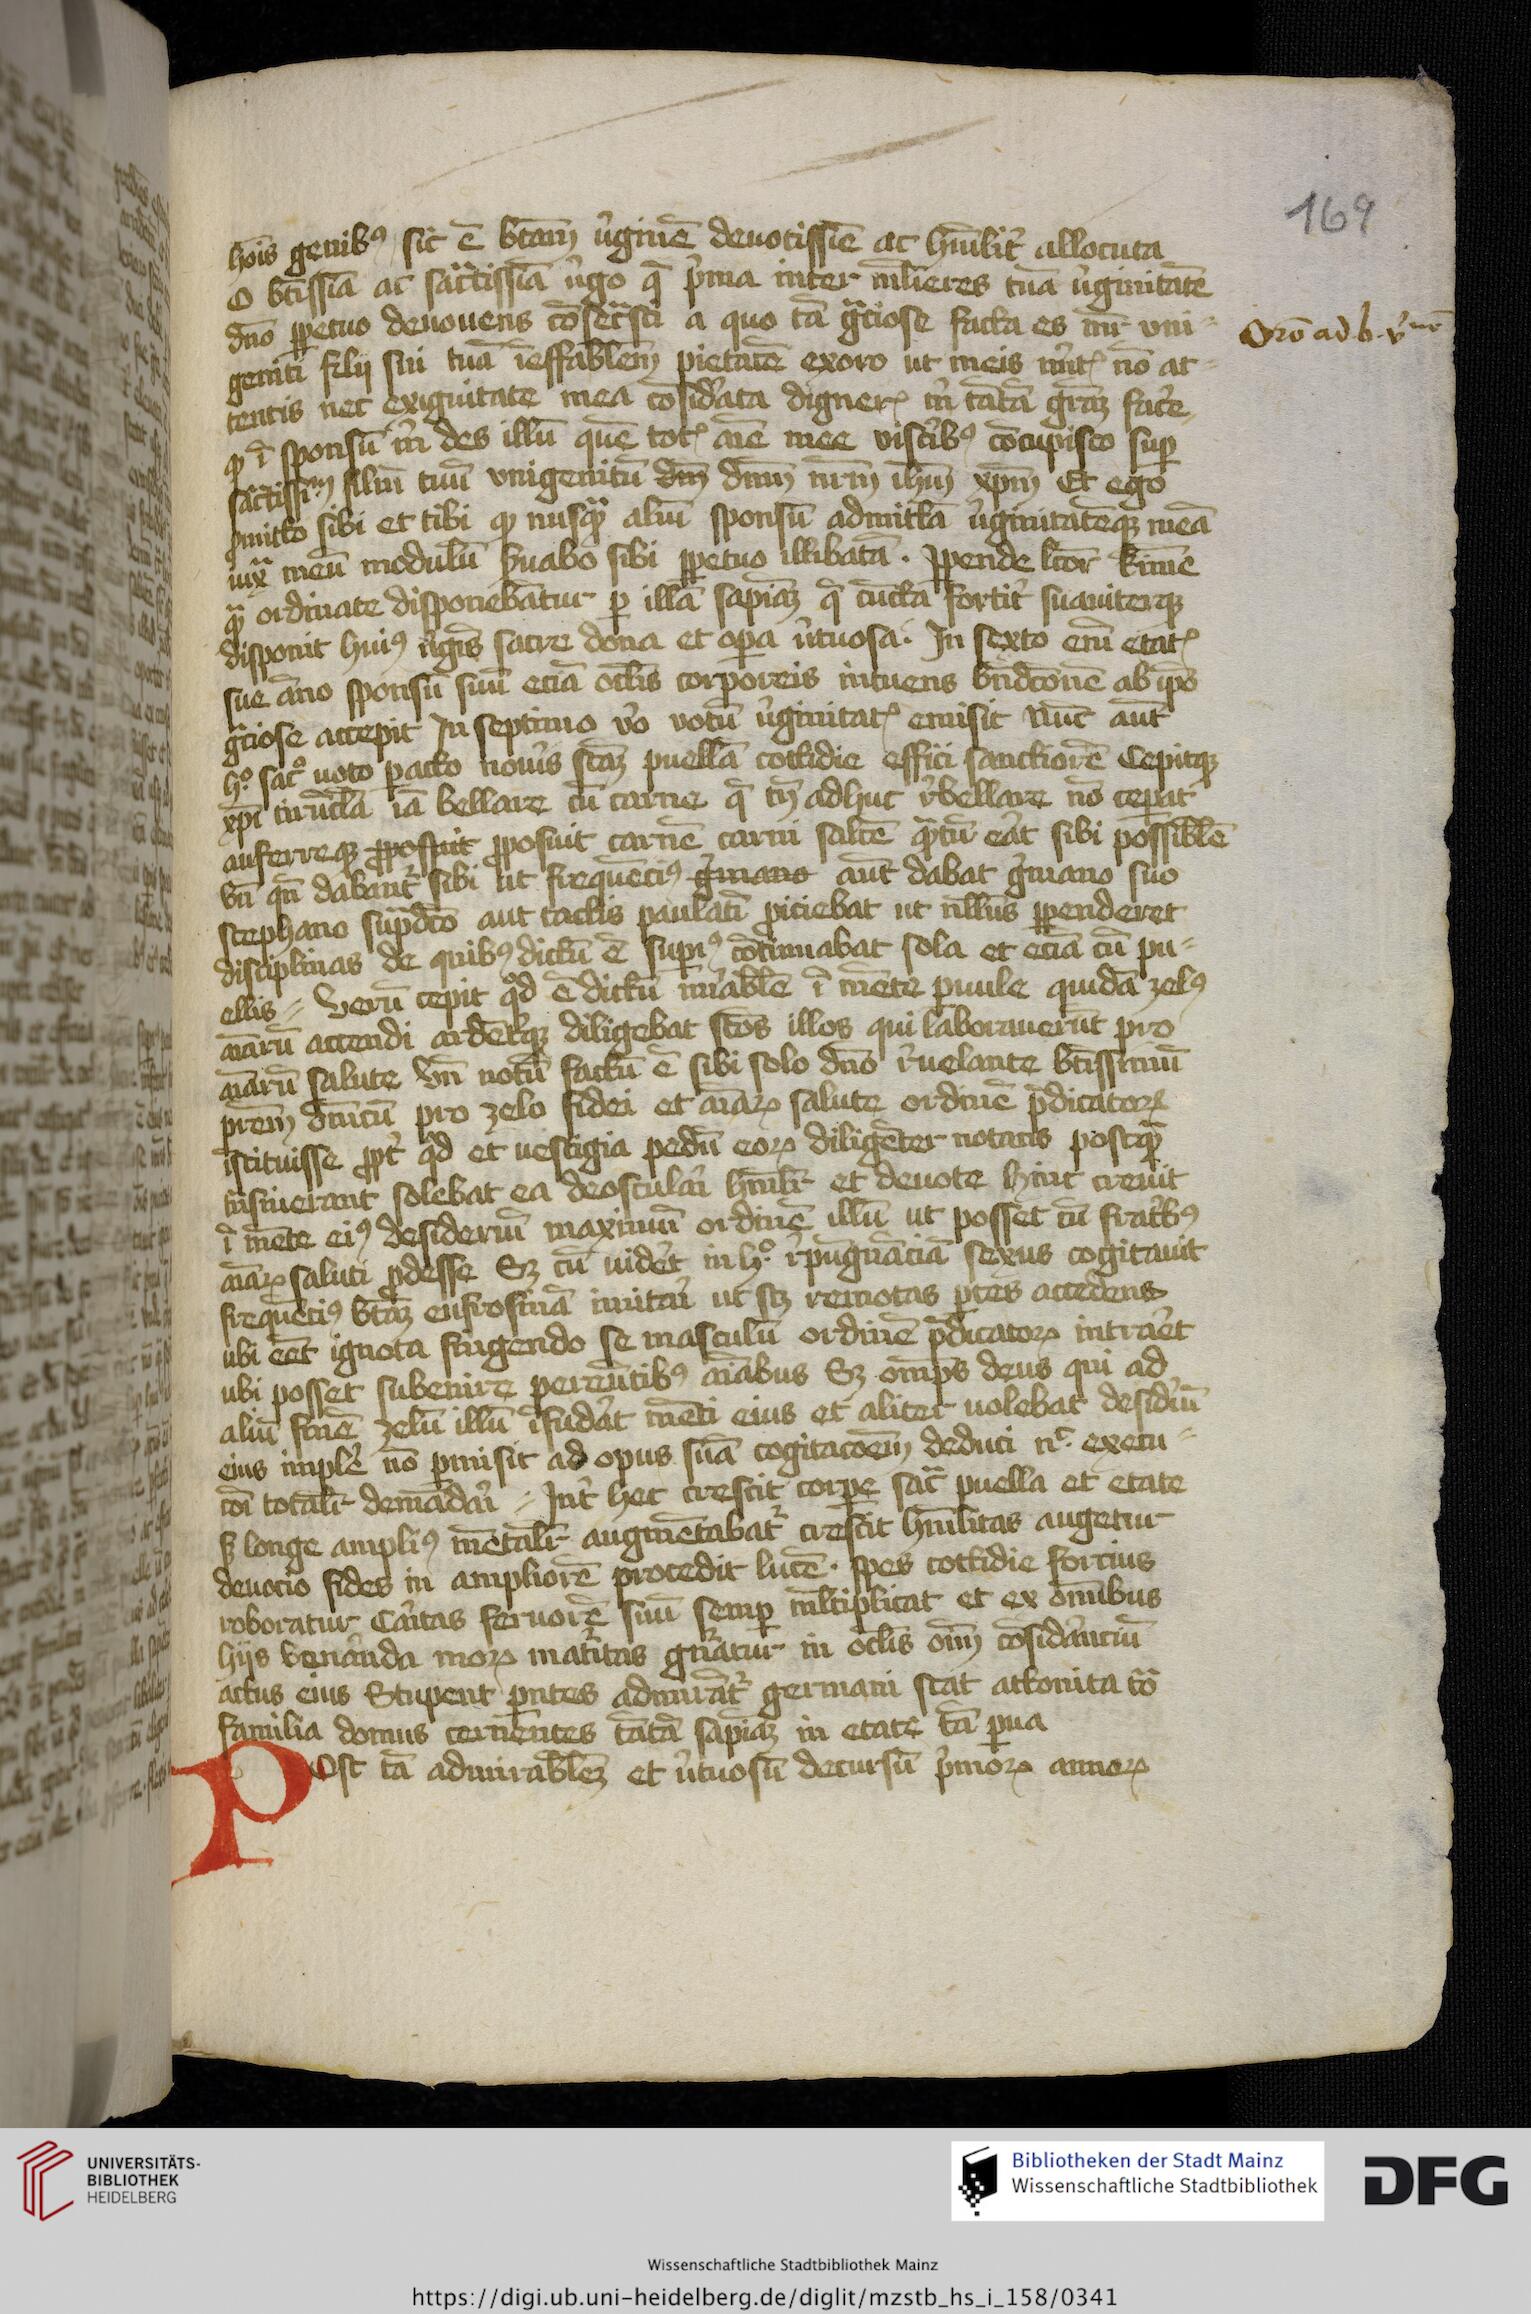 169
hōis genibꝰ sic ē btāꝫ v̓ginē deuotissīe ac hūilit̓ allocuta
O btīssīa ac sāctissīa v̓go q̄ p̓ma inter ml̄ieres tuā v̓ginitatē
dn̄o ꝑpetuo deuouens cōsec̄sti a quo tā ḡciose facta es mr̄ vni-
geniti filij sui tuā īeffablēm pietatē exoro ut meis nō at-
Orō ad b v̓nē
tentis nec exiguitate mea cōsid̓ata m̄ tātā gr̄aꝫ fac̓e
ꝙ ī sponsū m̄ des illū quē totꝭ aīe mee visc̓ibꝰ cōcupisco suꝑ
sāctissīm filiū tuū vnigenitū dn̄m nr̄m ihm̄ xp̄m Et ego
ꝓmitto sibi et tibi ꝙ nusq̄ aliū sponsū admittā v̓ginitatēqꝫ meā
iux̄ meū modulū s̓uabo sibi ꝑpetuo illibatā . Ppende lc̄or
q̄ ordinate disponebātur ꝑ illā sapīaꝫ q̄ cūcta fortit̓ suauiterqꝫ
disponit huiꝰ v̓gis̄ sacre dona et oꝑa v̓tuosa. In sexto enī etatꝭ
sue āno sponsū suū eciā oc̄lis corporeis intuens bn̄dcōnē ab ip̄o
ḡciose accepit In septimo v̓o votū v̓ginitatꝭ emisit Nūc aūt
h̊ sac̊ uoto ꝑacto nouīs scāꝫ puellā cottidie effici sanctiorē Cepitqꝫ
xp̄i tirūcla iā bellare cū carne q̄ tn̄ adhuc r̓bellare nō ceꝑat
auferreqꝫ ꝓposuit ꝓposuit carnē carni saltē q̄tū eāt sibi possiblē
vn̄ qn̄ dabant̓ sibi ut frequēciꝰ g̓mano aūt dabat g̓mano suo
stephano sup̄dc̄o aut cattis paulati piciebat ut nullus ꝑpenderet
disciplinas de quibꝰ dictū ē supiꝰ cōtinuabat sola et eciā cū pu-
ellis Verū cepit qd̄ ē dictū mirabile ī mēte pūule quidā zelꝰ
aīarū accendi ardētqꝫ diligebat scōs illos qui laborauerūt pro
aīarū salute vn̄ notū factū ē sibi solo dn̄o r̓uelante btīssimū
pr̄em dn̄icū pro zelo fidei et aīaꝝ salute ordinē p̄dicatoꝝ
īstituisse ꝓpt̓ qd̄ et vestigia pedū eoꝝ diligēter notatis postq̄
tn̄siuerant solebat ea deoscula̓i hūilr̄ et deuote hinc creuit
ī mēte eiꝰ desideriū maximū ordinē illū ut posset cū fratr̄ibꝰ
aīaꝝ saluti ꝓdesse Sꝫ cū uid̓et in h̊ r̓pugnāciā sexus cogitauit
frequēciꝰ btāꝫ eufrosinā imita̓i ut scꝫ remotas ꝑtes accedens
ubi eēt ignota fingendo se masculū ordinē p̄dicatoꝝ intra̓et
ubi posset subenire pereūtibꝰ aīabus Sꝫ omp̄s deus qui ad
aliū finē zelū illū īfud̓at mēti eius et aliter uolebat desid̓iū
eius imple̓ nō ꝑmisit ad opus suā cogitacōēm deduci nͨ execu-
cōi totalr̄ demāda̓i Int̓ hec crescit corpe sac̄ puella et etate
sꝫ longe ampliꝰ mētalr̄ augmētabat̓ crescit hūilitas augetur
deuocio fides in ampliorē procedit lucē . spes cottidie forcius
roboratur Ca̓itas feruorē suū semꝑ ml̄tiplicat et ex omībus
hijs ven̄anda moꝝ mat̓itas gn̄atur in oc̄lis oīm cōsid̓anciū
actus eius Stupent pn̄tes admirāt̓ germani stat attonita tō
familia domus cernētes tātā sapīaꝫ in etate tā pua
POst tā admirablēꝫ et v̓tuosū decursū p̓moꝝ annoꝝ
UNIVERSITÄTS-
BIBLIOTHEK
HEIDELBERG
Bibliotheken der Stadt Mainz
Wissenschaftliche Stadtbibliothek
DFG
Wissenschaftliche Stadtbibliothek Mainz
https://digi.ub.uni-heidelberg.de/diglit/mzstb_hs_i_158/0341